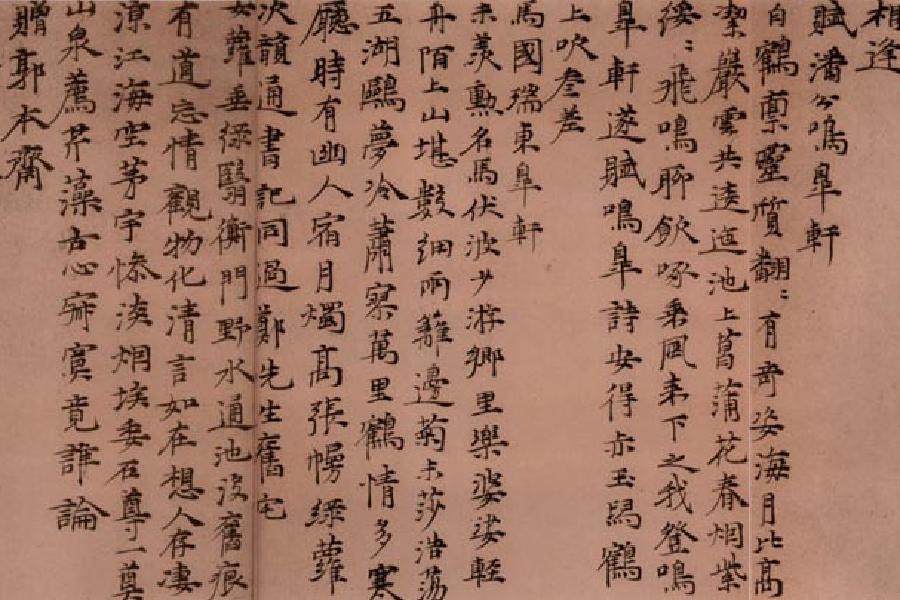 相逢
賦潘公鳴皐軒
白鶴稟靈質翩〻有奇姿海月比高
潔嚴雲共逶迤池上菖蒲花春烟紫
綏〻飛鳴聊飲啄乘風来下之我登鳴
皐軒遂賦鳴皐詩安得赤玉舄鶴
上吹叄差
馬國瑞東皐軒
未羨勳名馬伏波少游鄉里樂婆娑輕
舟陌上山堪數細雨籬邊菊未莎浩蕩
五湖鷗夢冷蕭寥萬里鶴情多寒
廳時有幽人宿月燭高張幌綠蘿
次韻通書記同過鄭先生舊宅
女蘿垂綠翳衡門野水通池沒舊痕
有道忘情觀物化清言如在想人存凄
涼江海空茅宇慘淡烟埃委石尊一奠
山泉薦芹藻古心寂寞竟誰論
贈郭本齋